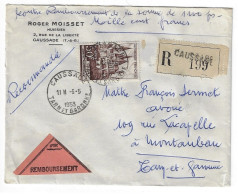 contre remboursement de la somme de 1100 frs
mille cent francs
ROGER MOISSET
HUISSIER
2, RUE DE LA LIBERTÉ
CAUSSADE (T.-&-G.)
Recommandé
R CAUSSADE
139
CAUSSADE
TARN ET GARONNE
Maître François Sermet
avoué
109 rue Lacapelle
à Montauban
Tarn-et-Garonne
REMBOURSEMENT